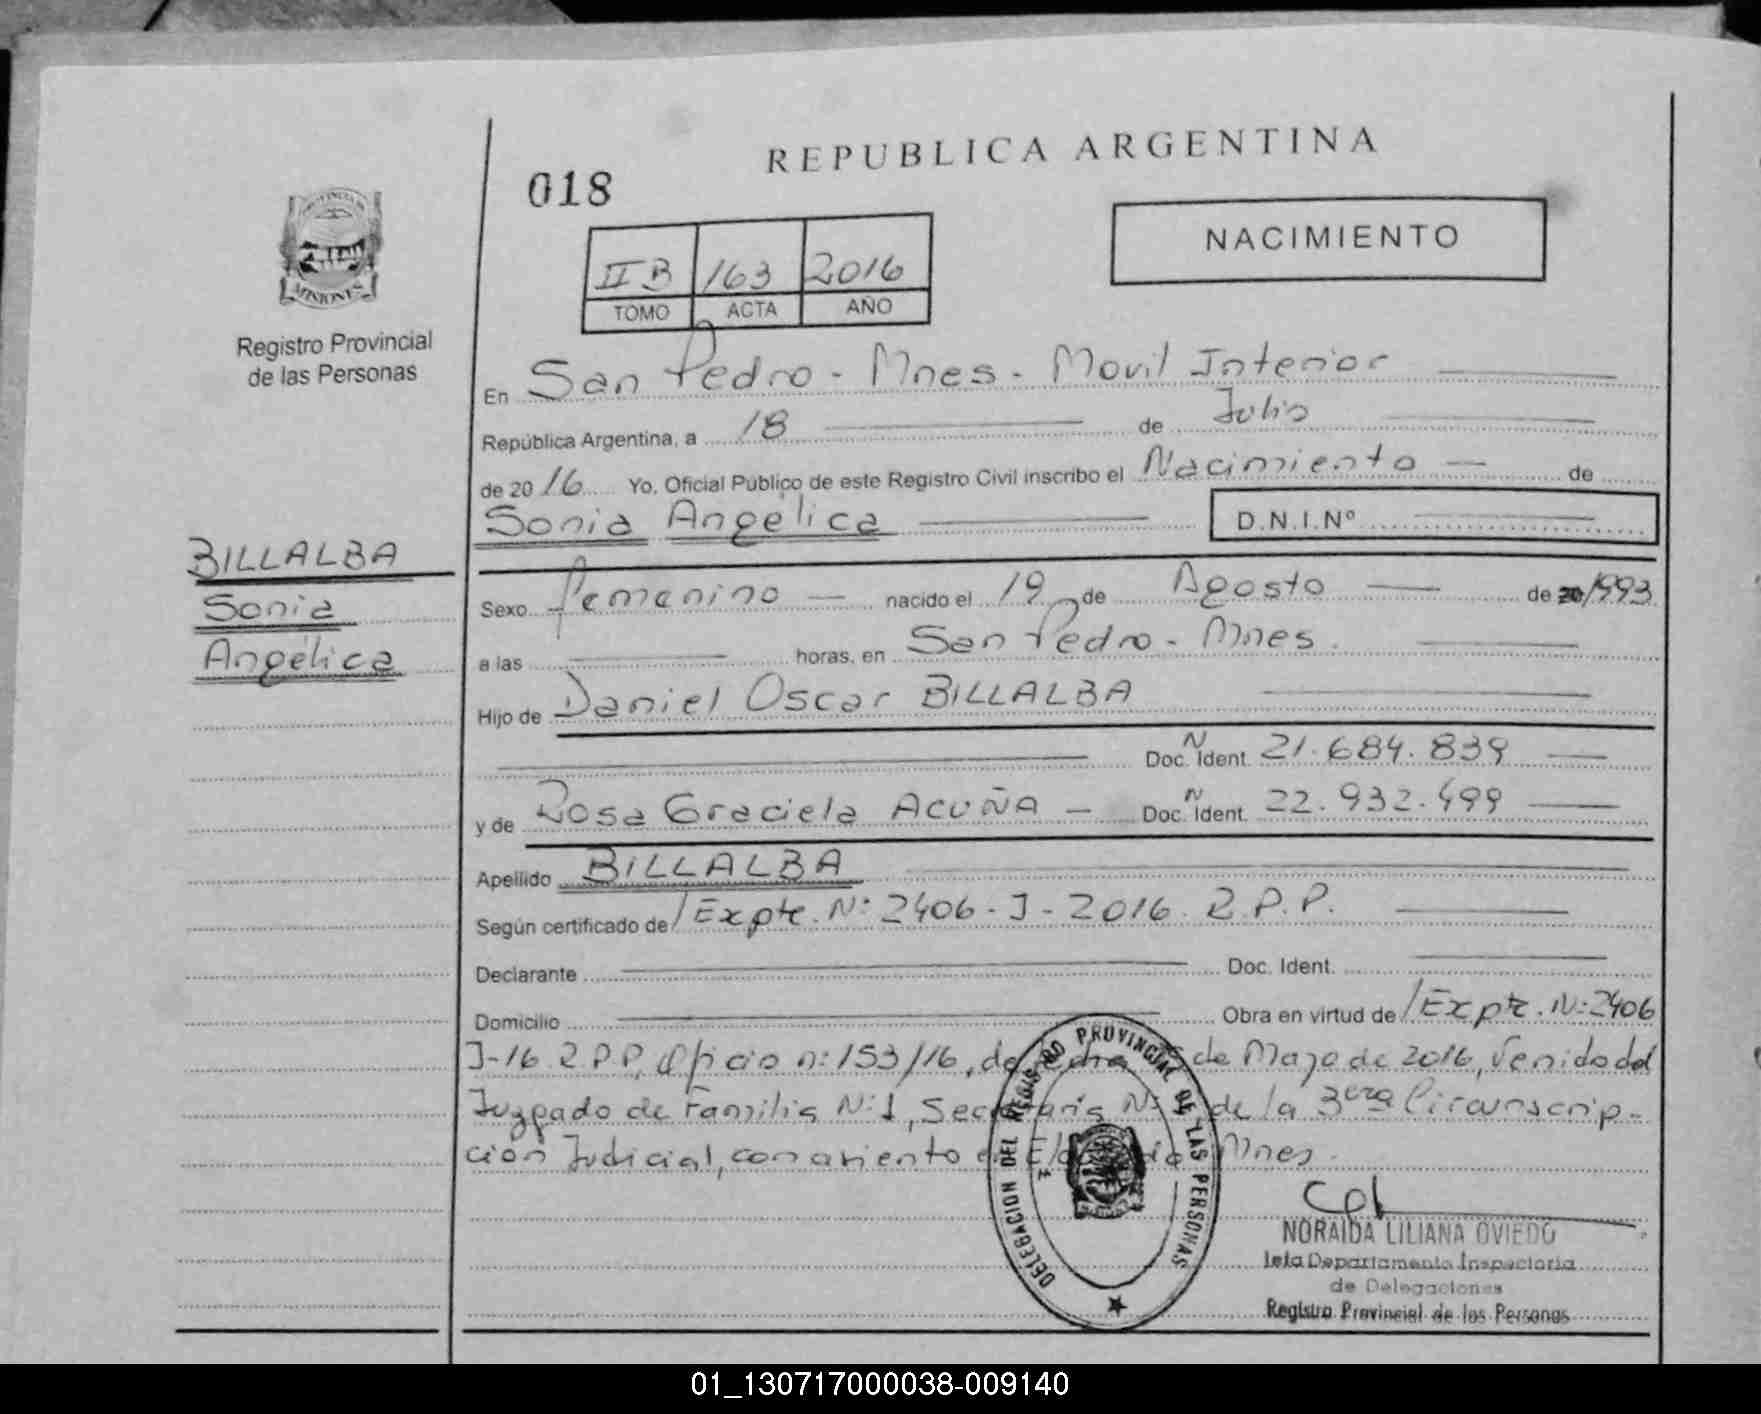 REPUBLICA ARGENTINA
018
NACIMIENTO
PROVINCIA DE
MISIONES
II B 163 2016
TOMO ACTA AÑO
Registro Provincial
de las Personas
En San Pedro - Mnes - Movil Interior
República Argentina, a 18 de Julio
de 2016 Yo, Oficial Público de este Registro Civil inscribo el Nacimiento de
Sonia Angelica D.N.I.Nº
BILLALBA
Sonia
Angelica
Sexo femenino nacido el 19 de Agosto de 20 1993
a las horas, en San Pedro - Mnes.
Hijo de Daniel Oscar BILLALBA
Doc. N Ident. 21.684.839
y de Rosa Graciela ACUÑA Doc. N Ident. 22.932.499
Apellido BILLALBA
Según certificado de/ Expte. N: 2406 - J - 2016. R.P.P.
Declarante Doc. Ident.
Domicilio Obra en virtud de/ Expte. N: 2406
J-16 R.P.P, Oficio n: 153/16, de fecha de Mayo de 2016, venido del
Juzgado de Familia N: 1, Secretaria N: de la 3era Circunscrip-
cion Judicial, con asiento en Eldorado Mnes.
DELEGACION DEL REGISTRO PROVINCIAL DE LAS PERSONAS
NORAIDA LILIANA OVIEDO
Jefa Departamento Inspectoria
de Delegaciones
Registro Provincial de las Personas
01_130717000038-009140